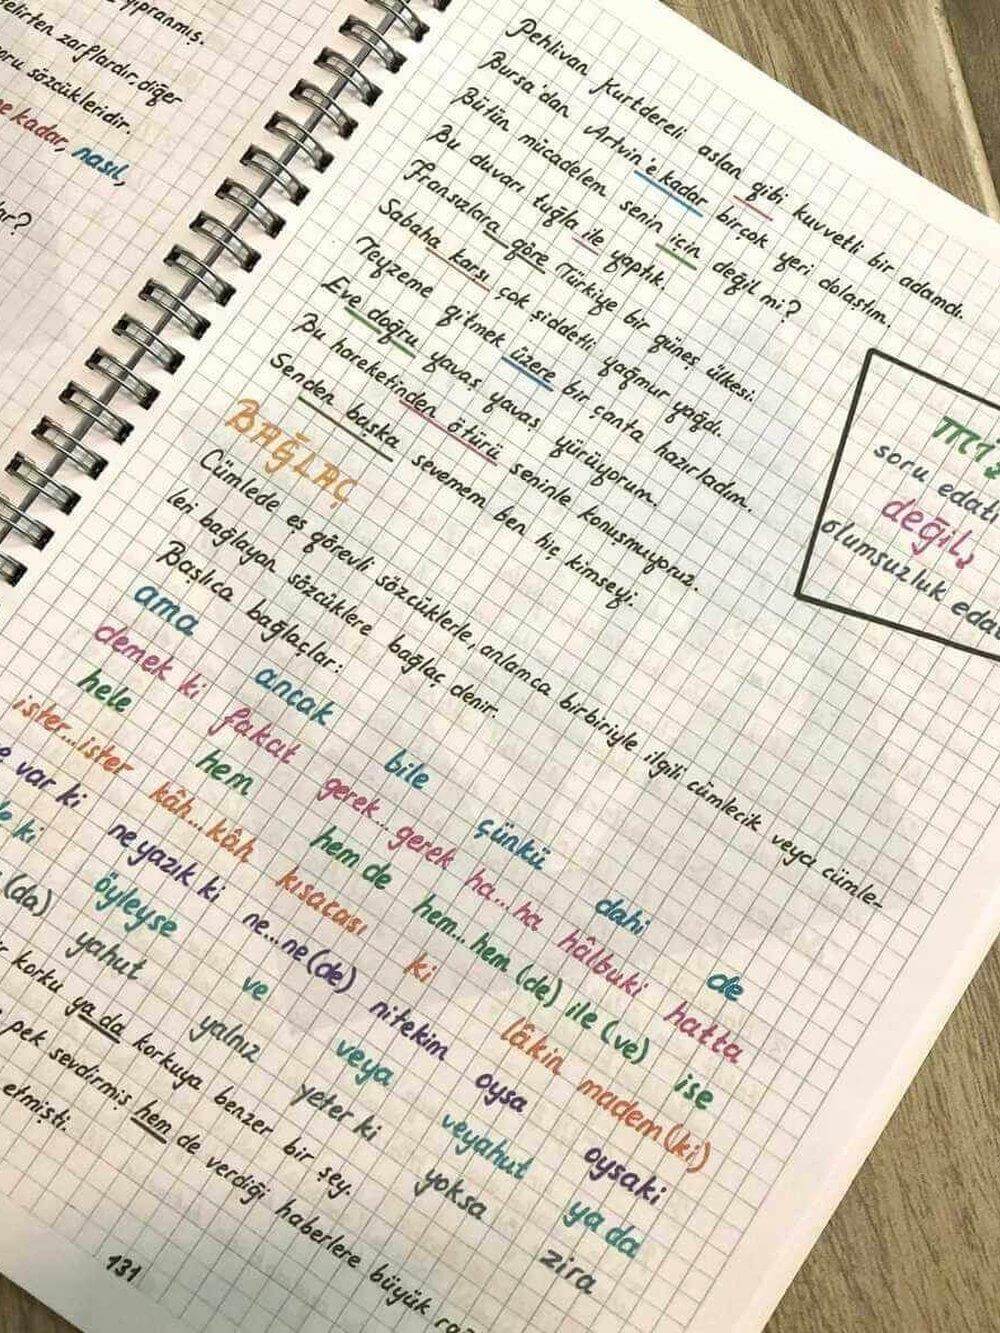 yıpranmış.
belirten zarflardır, diğer
soru sözcükleridir.
ne kadar, nasıl,
Pehlivan Kurtdereli aslan gibi kuvvetli bir adamdı.
Bursa'dan Artvin'e kadar birçok yeri dolaştım.
Bütün mücadelem senin için değil mi?
Bu duvarı tuğla ile yaptık.
Fransızlara göre Türkiye bir güneş ülkesi.
Sabaha karşı çok şiddetli yağmur yağdı.
Teyzeme gitmek üzere bir çanta hazırladım.
Eve doğru yavaş yavaş yürüyorum.
Bu hareketinden ötürü seninle konuşmuyoruz.
Senden başka sevemem ben hiç kimseyi.
soru edatı
değil,
olumsuzluk
BAĞLAÇ
Cümlede eş görevli sözcüklerle, anlamca birbiriyle ilgili cümlecik veya cümle-
leri bağlayan sözcüklere bağlaç denir.
Başlıca bağlaçlar:
ama ancak bile çünkü dahi de
demek ki fakat gerek...gerek ha...ha hâlbuki hatta
hele hem hem de hem...hem (de) ile (ve) ise
ister...ister kâh...kâh kısacası ki lâkin madem(ki)
var ki ne yazık ki ne...ne(de) nitekim oysa oysaki
ki öyleyse ve veya veyahut ya da
(da) yahut yalnız yeter ki yoksa zira
korku ya da korkuya benzer bir şey.
pek sevdirmiş hem de verdiği haberlere büyük
etmişti.
131